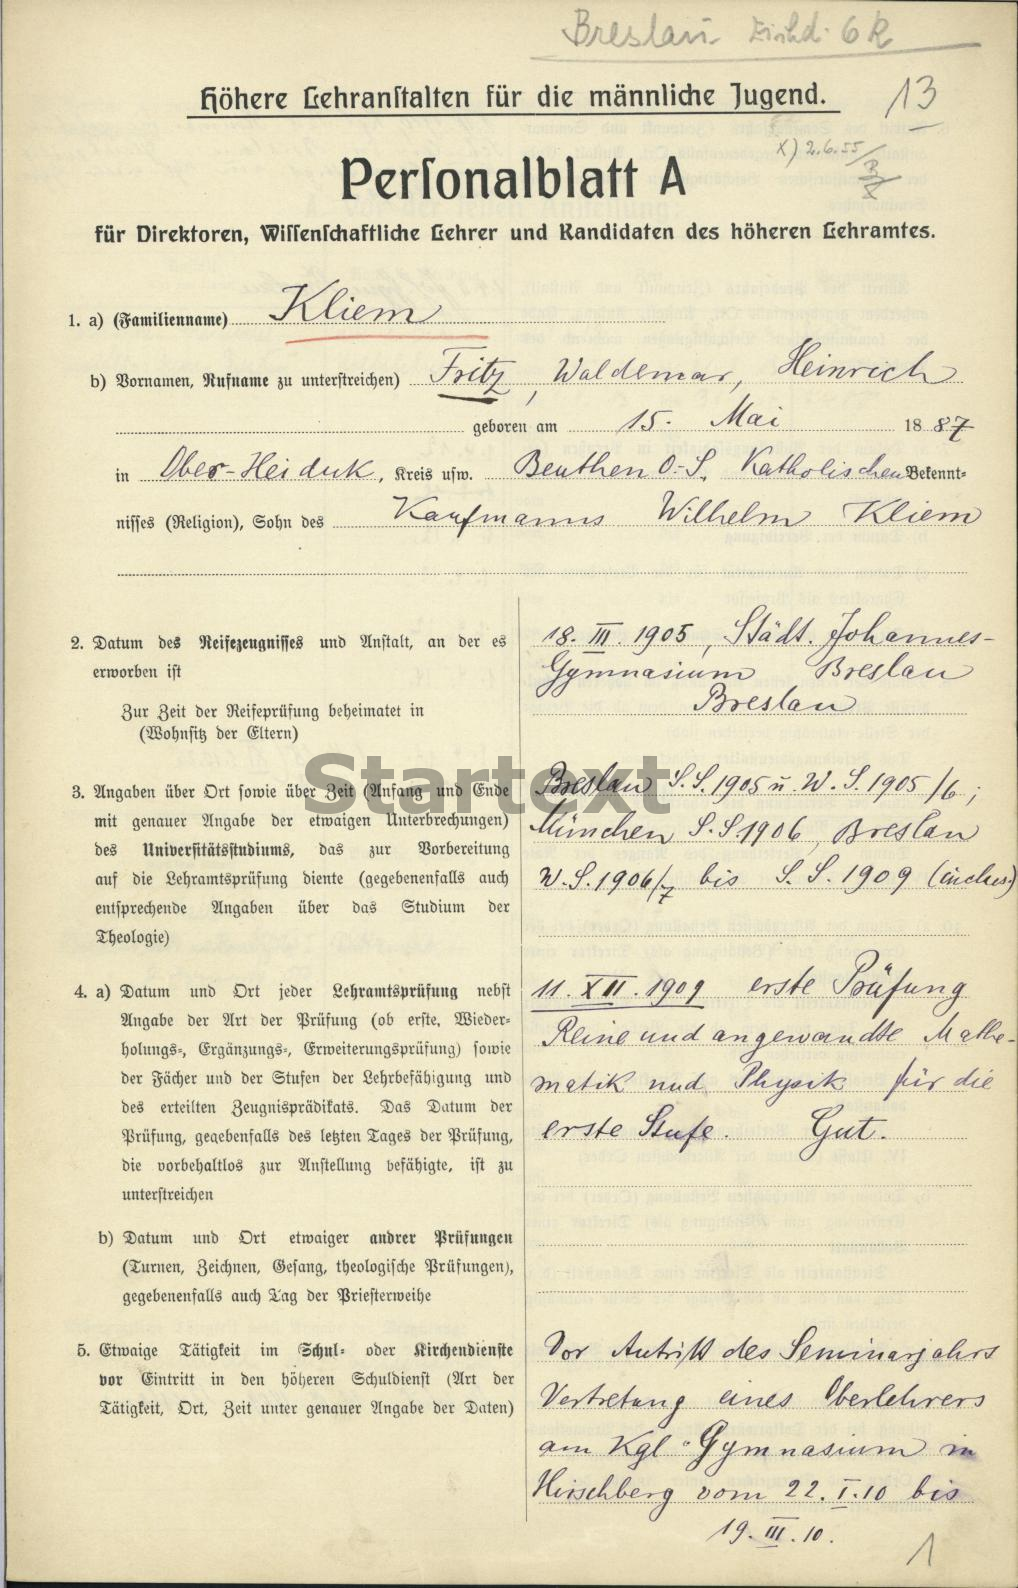 Breslau 6 R
Höhere Lehranstalten für die männliche Jugend.
13
x) 2.6.55
Personalblatt A
für Direktoren, Wissenschaftliche Lehrer und Kandidaten des höheren Lehramtes.
1. a) (Familienname) Kliem
b) Vornamen, Rufname zu unterstreichen) Fritz, Waldemar, Heinrich
geboren am 15. Mai 1887
in Ober-Heiduk, Kreis usw. Beuthen O.-S. Katholischen Bekennt-
nisses (Religion), Sohn des Kaufmanns Wilhelm Kliem
2. Datum des Reifezeugnisses und Anstalt, an der es
erworben ist
Zur Zeit der Reifeprüfung beheimatet in
(Wohnsitz der Eltern)
18. III. 1905, Städt. Johannes-
Gymnasium Breslau
Breslau
Startext
3. Angaben über Ort sowie über Zeit (Anfang und Ende
mit genauer Angabe der etwaigen Unterbrechungen)
des Universitätsstudiums, das zur Vorbereitung
auf die Lehramtsprüfung diente (gegebenenfalls auch
entsprechende Angaben über das Studium der
Theologie)
Breslau S.S. 1905 u. W.S. 1905/6;
München S.S. 1906, Breslau
W.S. 1906/7 bis S.S. 1909 (inclus.)
4. a) Datum und Ort jeder Lehramtsprüfung nebst
Angabe der Art der Prüfung (ob erste, Wieder-
holungs-, Ergänzungs-, Erweiterungsprüfung) sowie
der Fächer und der Stufen der Lehrbefähigung und
des erteilten Zeugnisprädikats. Das Datum der
Prüfung, gegebenfalls des letzten Tages der Prüfung,
die vorbehaltlos zur Anstellung befähigte, ist zu
unterstreichen
11. XII. 1909 erste Prüfung
Reine und angewandte Mathe-
matik und Physik für die
erste Stufe. Gut.
b) Datum und Ort etwaiger andrer Prüfungen
(Turnen, Zeichnen, Gesang, theologische Prüfungen),
gegebenenfalls auch Tag der Priesterweihe
5. Etwaige Tätigkeit im Schul- oder Kirchendienste
vor Eintritt in den höheren Schuldienst (Art der
Tätigkeit, Ort, Zeit unter genauer Angabe der Daten)
Vor Antritt des Seminarjahrs
Vertretung eines Oberlehrers
am Kgl. Gymnasium in
Hirschberg vom 22. I. 10 bis
19. III. 10.
1